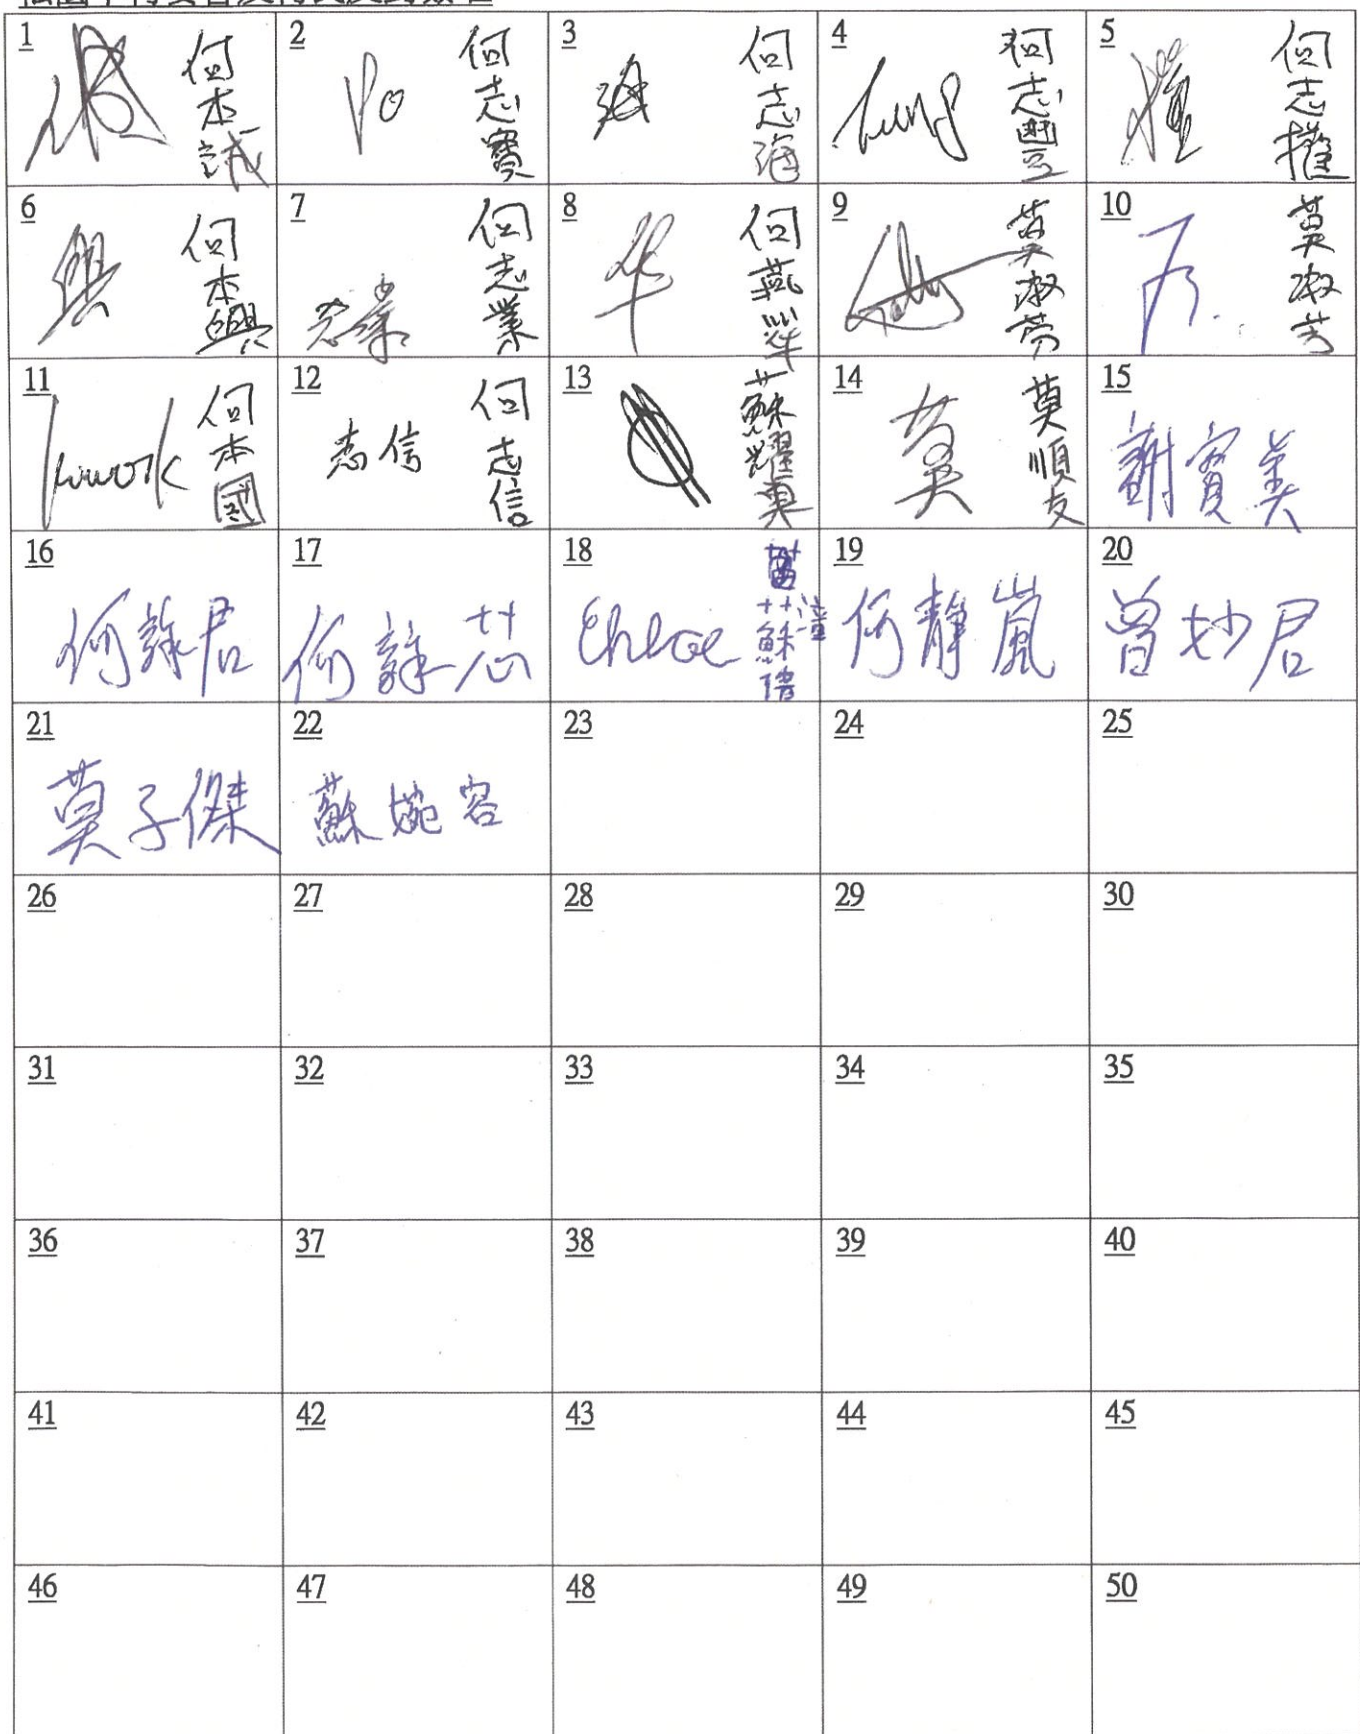 1 何本誠
2 Po 何志寶
3 海 何志海
4 Fung 何志豐
5 權 何志權
6 興 何本興
7 志業 何志業
8 华 何燕萍
9 莫淑芬
10 莫淑芳
11 kwork 何本國
12 志信 何志信
13 蘇耀興
14 莫 莫順友
15 謝寶美
16 何詠君
17 何詠芯
18 Chloe
19 何靜嵐
20 曾妙君
21 莫子傑
22 蘇婉容
23
24
25
26
27
28
29
30
31
32
33
34
35
36
37
38
39
40
41
42
43
44
45
46
47
48
49
50